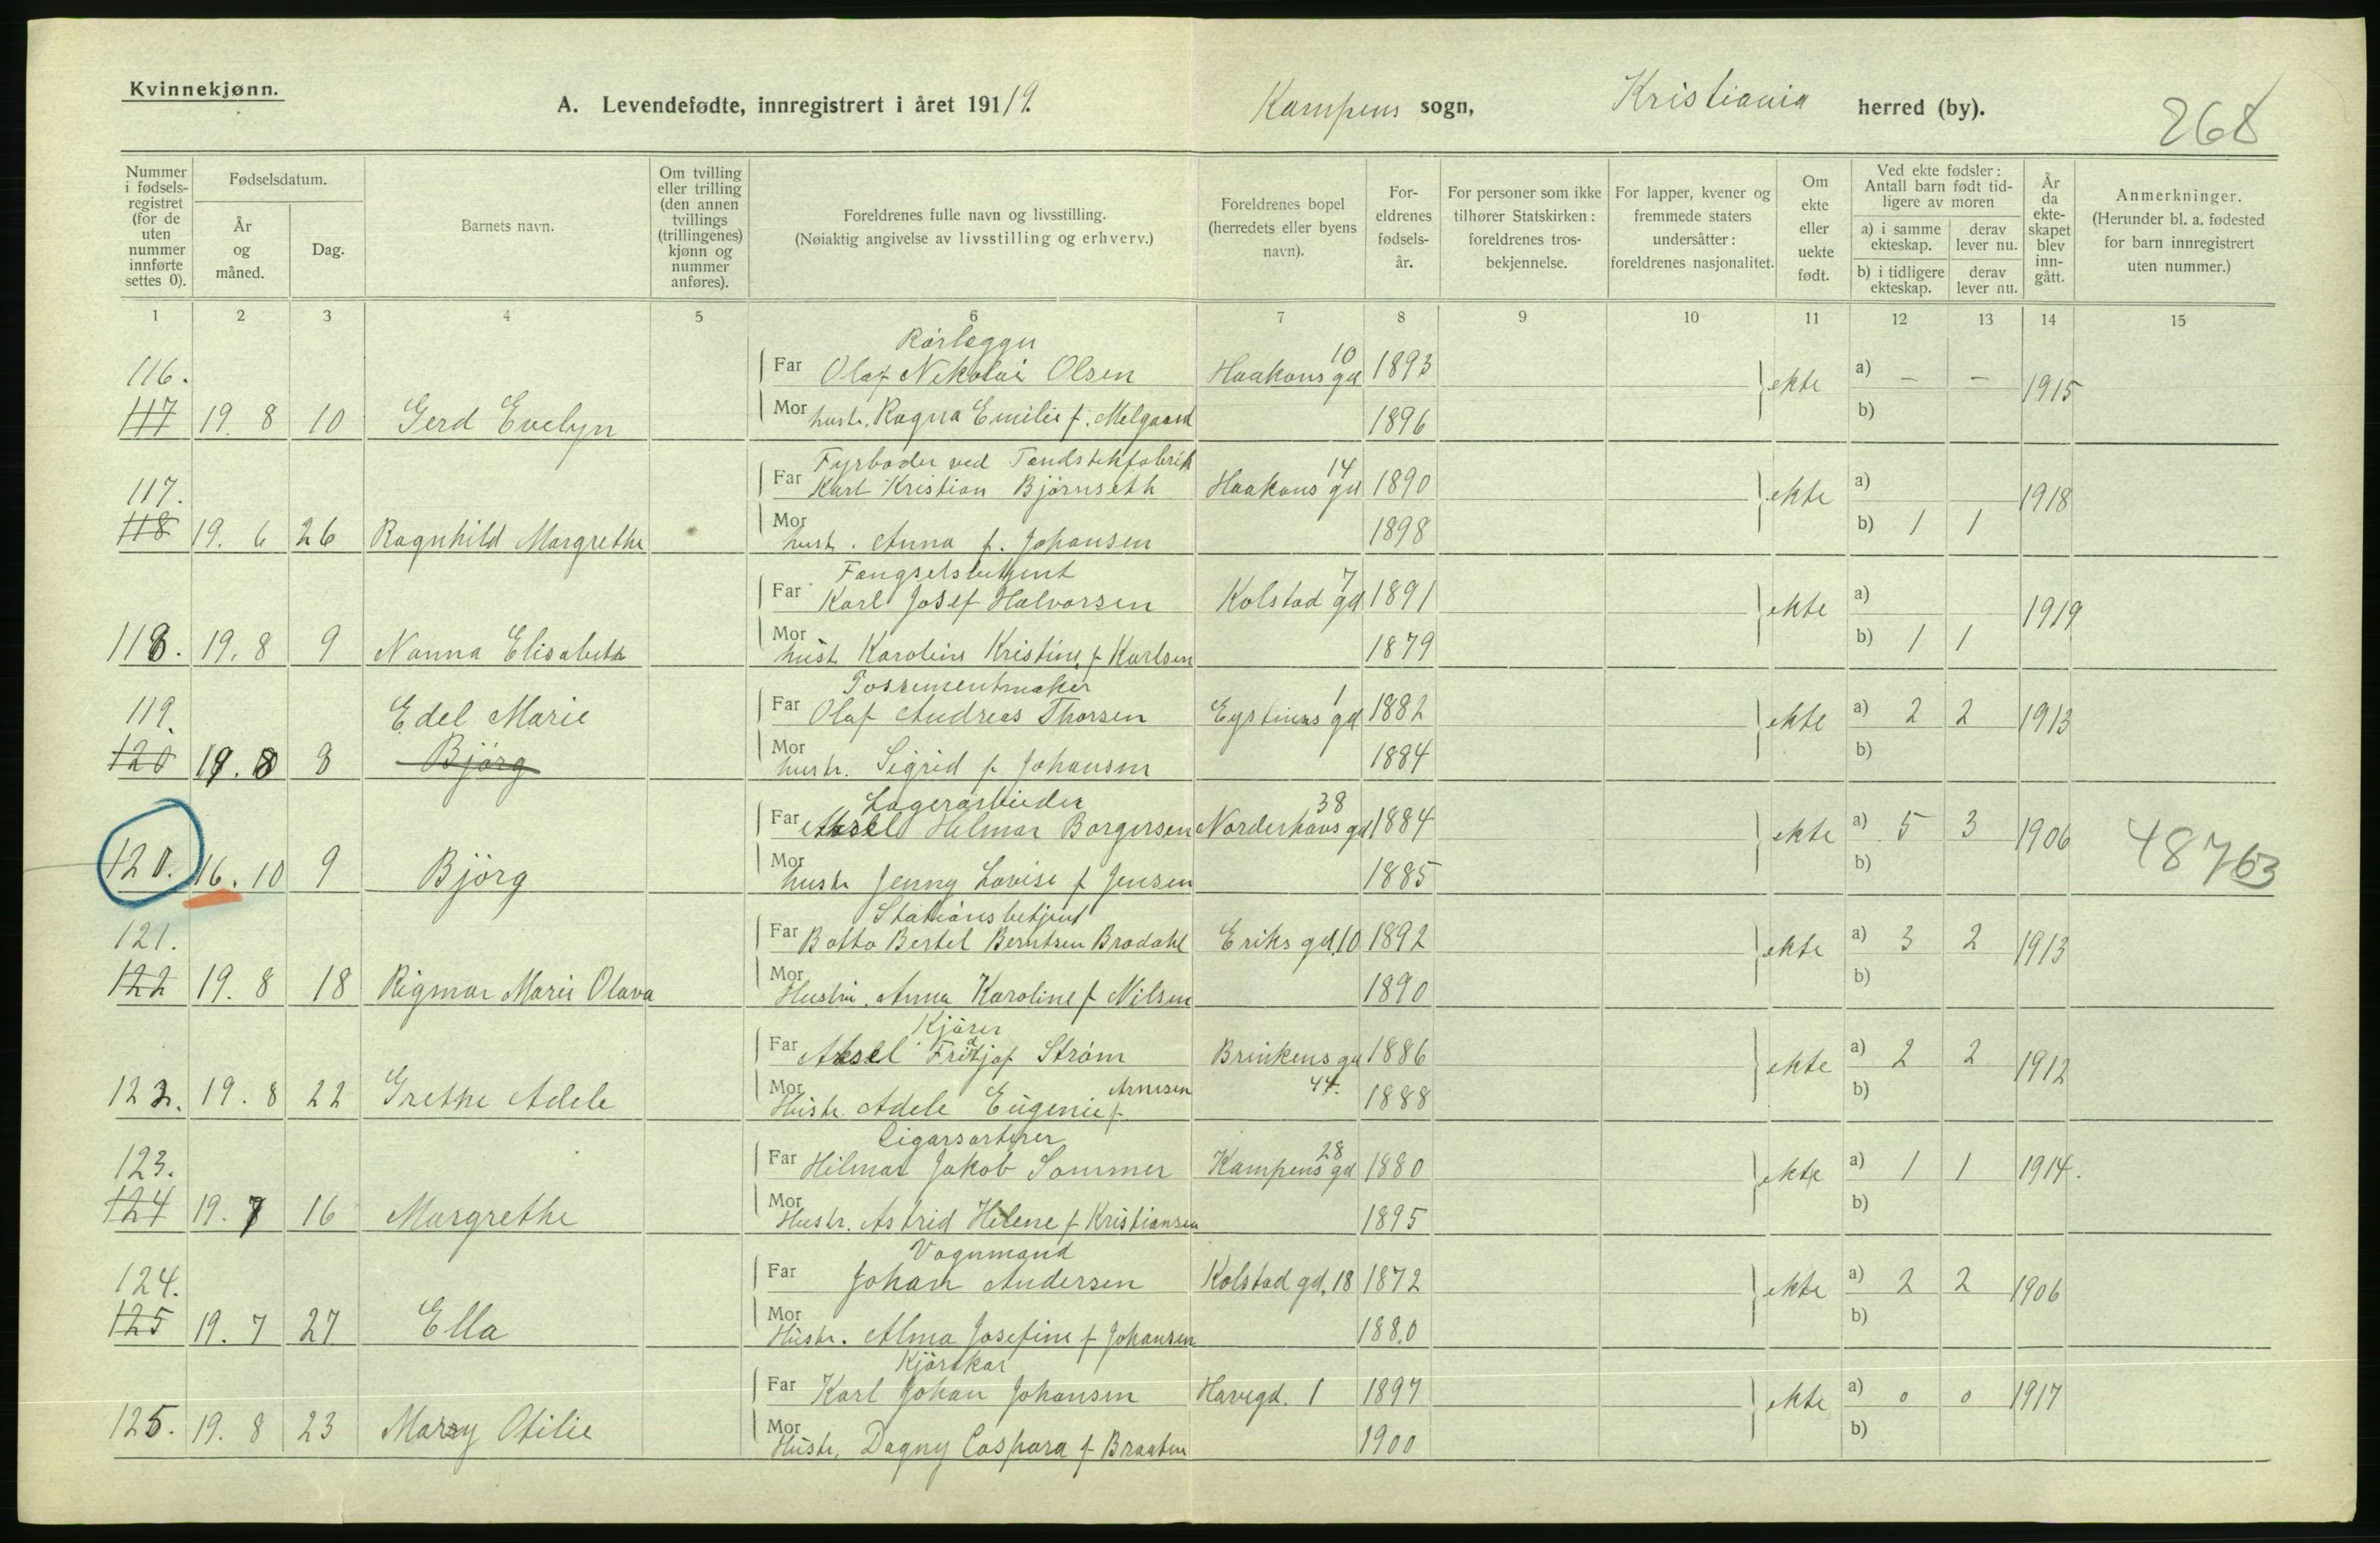 Kvinnekjønn.
A. Levendefødte, innregistrert i året 19119. Kampens sogn, Kristiania herred (by). 268
Nummer i fødselsregistret (for de uten nummer innførte settes 0).
Fødselsdatum.
År og måned.
Dag.
Barnets navn.
Om tvilling eller trilling (den annen tvillings (trillingenes) kjønn og nummer anføres).
Foreldrenes fulle navn og livsstilling.
(Nøiaktig angivelse av livsstilling og erhverv.)
Foreldrenes bopel (herredets eller byens navn).
Foreldrenes fødselsår.
For personer som ikke tilhører Statskirken: foreldrenes trosbekjennelse.
For lapper, kvener og fremmede staters undersåtter: foreldrenes nasjonalitet.
Om ekte eller uekte født.
Ved ekte fødsler: Antall barn født tidligere av moren
a) i samme ekteskap. derav lever nu.
b) i tidligere ekteskap. derav lever nu.
År da ekteskapet blev inngått.
Anmerkninger.
(Herunder bl. a. fødested for barn innregistrert uten nummer.)
1 2 3 4 5 6 7 8 9 10 11 12 13 14 15
Rørlegger
116. Far Olaf Nikolai Olsen Haakons gd 10 1893 ekte a) – – 1915
117 19. 8 10 Gerd Evelyn Mor hustr. Ragna Emilie f. Melgaard 1896 b)
Fyrbøder ved Tændstikfabrik
117. Far Karl Kristian Bjørnseth Haakons gd 14 1890 ekte a) 1918
118 19. 6 26 Ragnhild Margrethe Mor hustr. Anna f. Johansen 1898 b) 1 1
Fængselsbetjent
Far Karl Josef Halvorsen Kolstad gd 7 1891 ekte a) 1919
118. 19. 8 9 Nanna Elisabeth Mor hustr Karoline Kristine f Karlsen 1879 b) 1 1
Possementmaker
119. Edel Marie Far Olaf Andreas Thorsen Eysteins gd 1 1882 ekte a) 2 2 1913
120 19. 8 8 Bjørg Mor hustr. Sigrid f Johansen 1884 b)
Lagerarbeider
Far Aksel Hilmar Borgersen Norderhovs gd 38 1884 ekte a) 5 3 1906
120. 16. 10 9 Bjørg Mor hustr Jenny Lovise f Jensen 1885 b) 48763
Stationsbetjent
121. Far Botto Bertel Berntsen Brodahl Eriks gd. 10 1892 ekte a) 3 2 1913
122 19. 8 18 Rigmor Marie Olava Mor Hustru. Anna Karoline f Nilsen 1890 b)
Kjører
Far Aksel Fridtjof Strøm Brinkens gd 1886 ekte a) 2 2 1912
122. 19. 8 22 Grethe Adele Mor Hustr. Adele Eugenie f Arnesen 44. 1888 b)
Cigarsorterer
123. Far Hilmar Jakob Sommer Kampens gd 28 1880 ekte a) 1 1 1914.
124 19. 7 16 Margrethe Mor Hustr. Astrid Helene f Kristiansen 1895 b)
Vognmand
124. Far Johan Andersen Kolstad gd. 18 1872 ekte a) 2 2 1906
125 19. 7 27 Ella Mor Hustr. Alma Josefine f Johansen 1880 b)
Kjørekar
Far Karl Johan Johansen Havegd. 1 1897 ekte a) 0 0 1917
125. 19. 8 23 Marry Otilie Mor Hustr. Dagny Caspara f Braaten 1900 b)